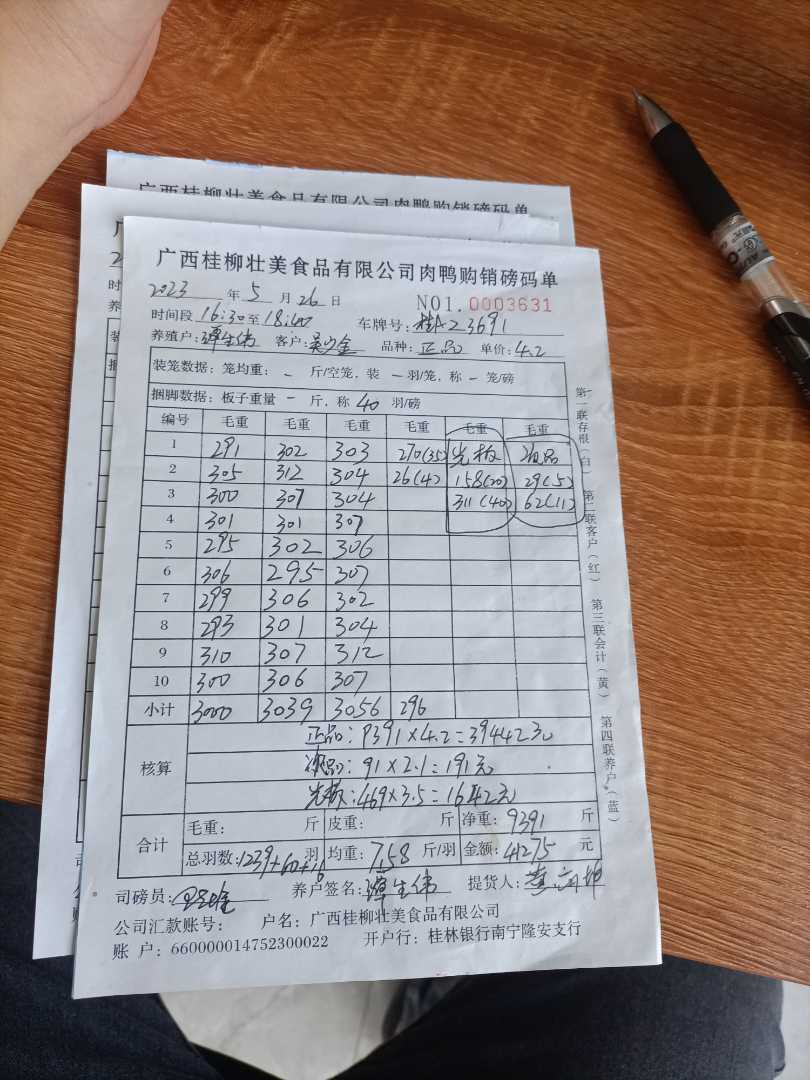 广西桂柳壮美食品有限公司肉鸭购销磅码单
广西桂柳壮美食品有限公司肉鸭购销磅码单
2023 年 5 月 26 日 NO1.0003631
时间段 16:30 至 18:40 车牌号: 桂A23691
养殖户: 谭生伟 客户: 吴少金 品种: 正品 单价: 4.2
装笼数据: 笼均重: - 斤/空笼, 装 - 羽/笼, 称 - 笼/磅
捆脚数据: 板子重量 - 斤, 称 40 羽/磅
编号 毛重 毛重 毛重 毛重 毛重 毛重
1 291 302 303 270(35) 光板 次品
2 305 312 304 26(4) 158(20) 29(5)
3 300 307 304 311(40) 62(11)
4 301 301 307
5 295 302 306
6 306 295 307
7 299 306 302
8 293 301 304
9 310 307 312
10 300 306 307
小计 3000 3039 3056 296
核算 正品: 9391×4.2=39442元
次品: 91×2.1=191元
光板: 469×3.5=1642元
合计 毛重: 斤 皮重: 斤 净重: 9391 斤
总羽数: 1239+60+16 羽 均重: 7.58 斤/羽 金额: 41275 元
司磅员: 养户签名: 谭生伟 提货人:
公司汇款账号: 户名: 广西桂柳壮美食品有限公司
账 户: 660000014752300022 开户行: 桂林银行南宁隆安支行
第一联存根(白) 第二联客户(红) 第三联会计(黄) 第四联养户(蓝)